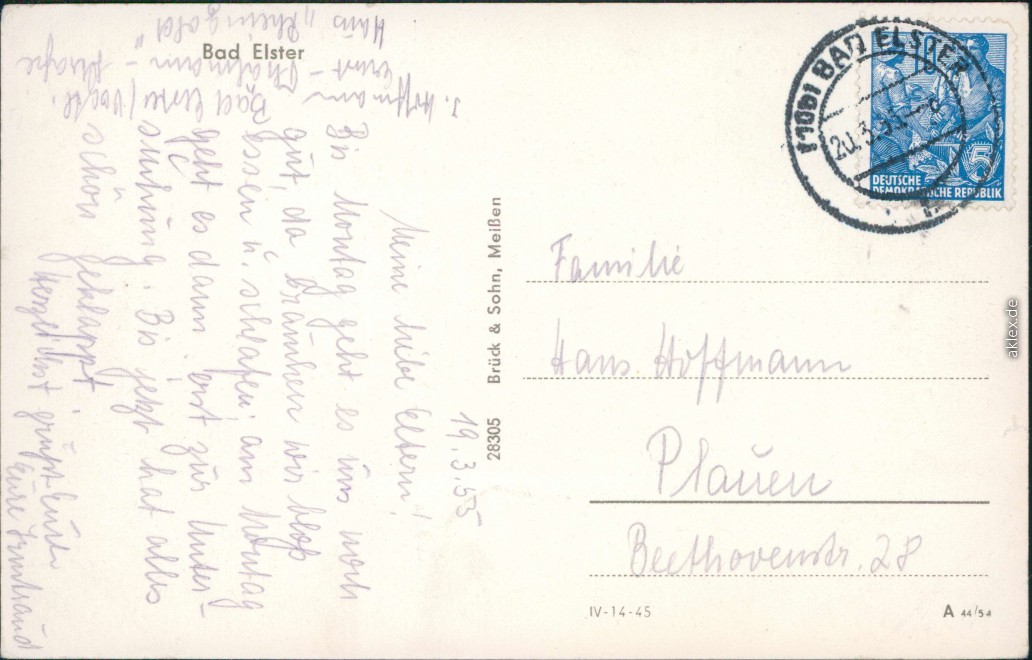 Bad Elster
J. Hoffmann
Bad Elster / Vogtl.
Ernst-Thälmann-Straße
Haus "Rheingold"
19.3.55
Meine lieben Eltern!
Bis Montag geht es uns noch
gut, da brauchen wir bloß
essen u. schlafen. Am Montag
geht es dann erst zur Unter-
suchung. Bis jetzt hat alles
schön geklappt.
Herzlichst grüßt Euch
Eure Irmtraud
28305 Brück & Sohn, Meißen
(10b) BAD ELSTER
20.3.55
DEUTSCHE
DEMOKRATISCHE REPUBLIK
5
Familie
Hans Hoffmann
Plauen
Beethovenstr. 28
IV-14-45
A 44/54
aklex.de